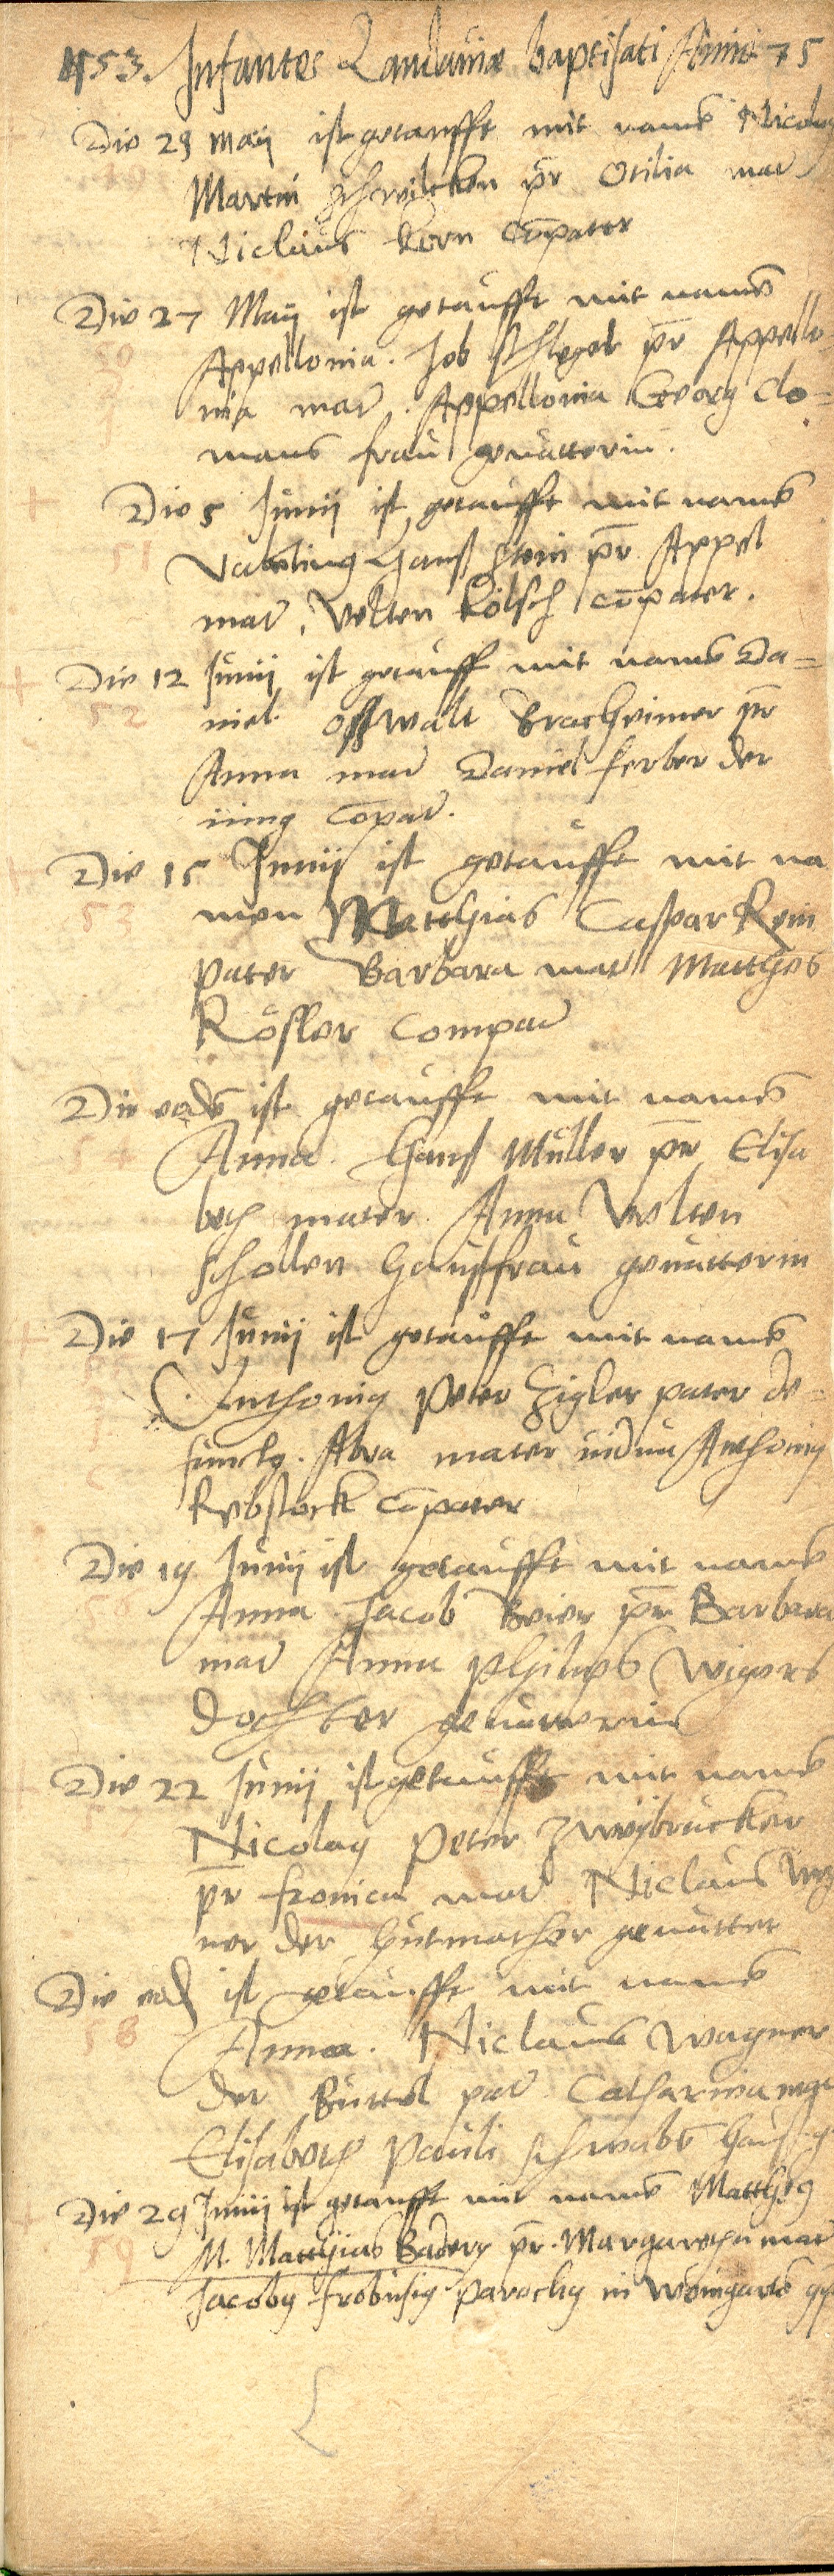 1553. Infantes Landaviæ baptisati Anno 75
Die 23 Maij ist getaufft mit name Nicolaus
Martin Schwilcken pr Otilia mar
Niclaus Kern Cōpater
Die 27 Maij ist getaufft mit name
50
Appellonia. Job Schlegel pr Appello-
nia mar. Appellonia Georg Clo=
mans frau gevatterin.
Die 5 Junij ist getaufft mit name
51
Valentinus Hans Stein pr Appel
mar, Velten Kölsch cōpater.
Die 12 Junij ist getauff mit name Da=
52
niel. Osswalt Bracheimer pr
Anna mar Daniel ferber der
iung Cōpar.
Die 15 Junij ist getaufft mit na
53
men Matthias Caspar Rein
pater Barbara mar Matthes
Rösler Compar
Die eodē ist getaufft mit name
54
Anna. Hans Müller pr Elisa
beth mater. Anna Velten
Schollen hausfrau gevatterin
Die 17 Junij ist getaufft mit name
Anthonius Peter Zigler pater de=
functus. Ava mater vidua Anthonius
Rebstock Cōpater
Die 19 Junij ist getaufft mit name
Anna Jacob Beier pr Barbara
mar Anna Philips Wigers
dochter gevatterin
Die 22 Junij ist getaufft mit name
Nicolaus Peter Zweybrucker
pr fronica mar Niclaus
ner der hutmacher gevatter
Die eod ist getaufft mit name
58
Anna. Niclaus Wagner
der Büttel par Catharina
Elisabeth Pauli Schwabe
Die 29 Junij ist getaufft mit name Mattheus
59
M. Matthias Baderus pr. Margaretha mar
Jacobus frobusius parochus in Weingarte